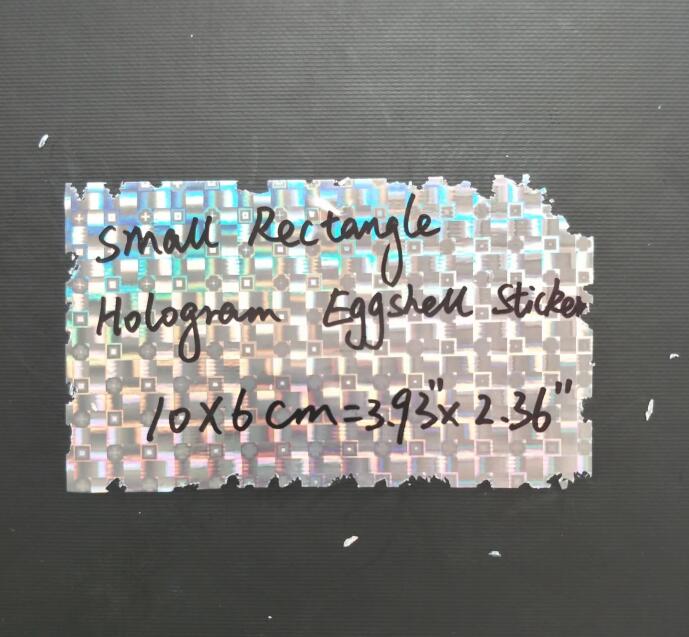 Small Rectangle
Hologram Eggshell Sticker
10X6cm=3.93"x 2.36"